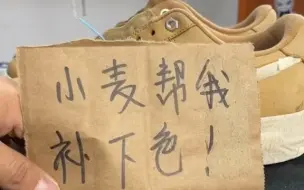 小麦帮我
补下色！